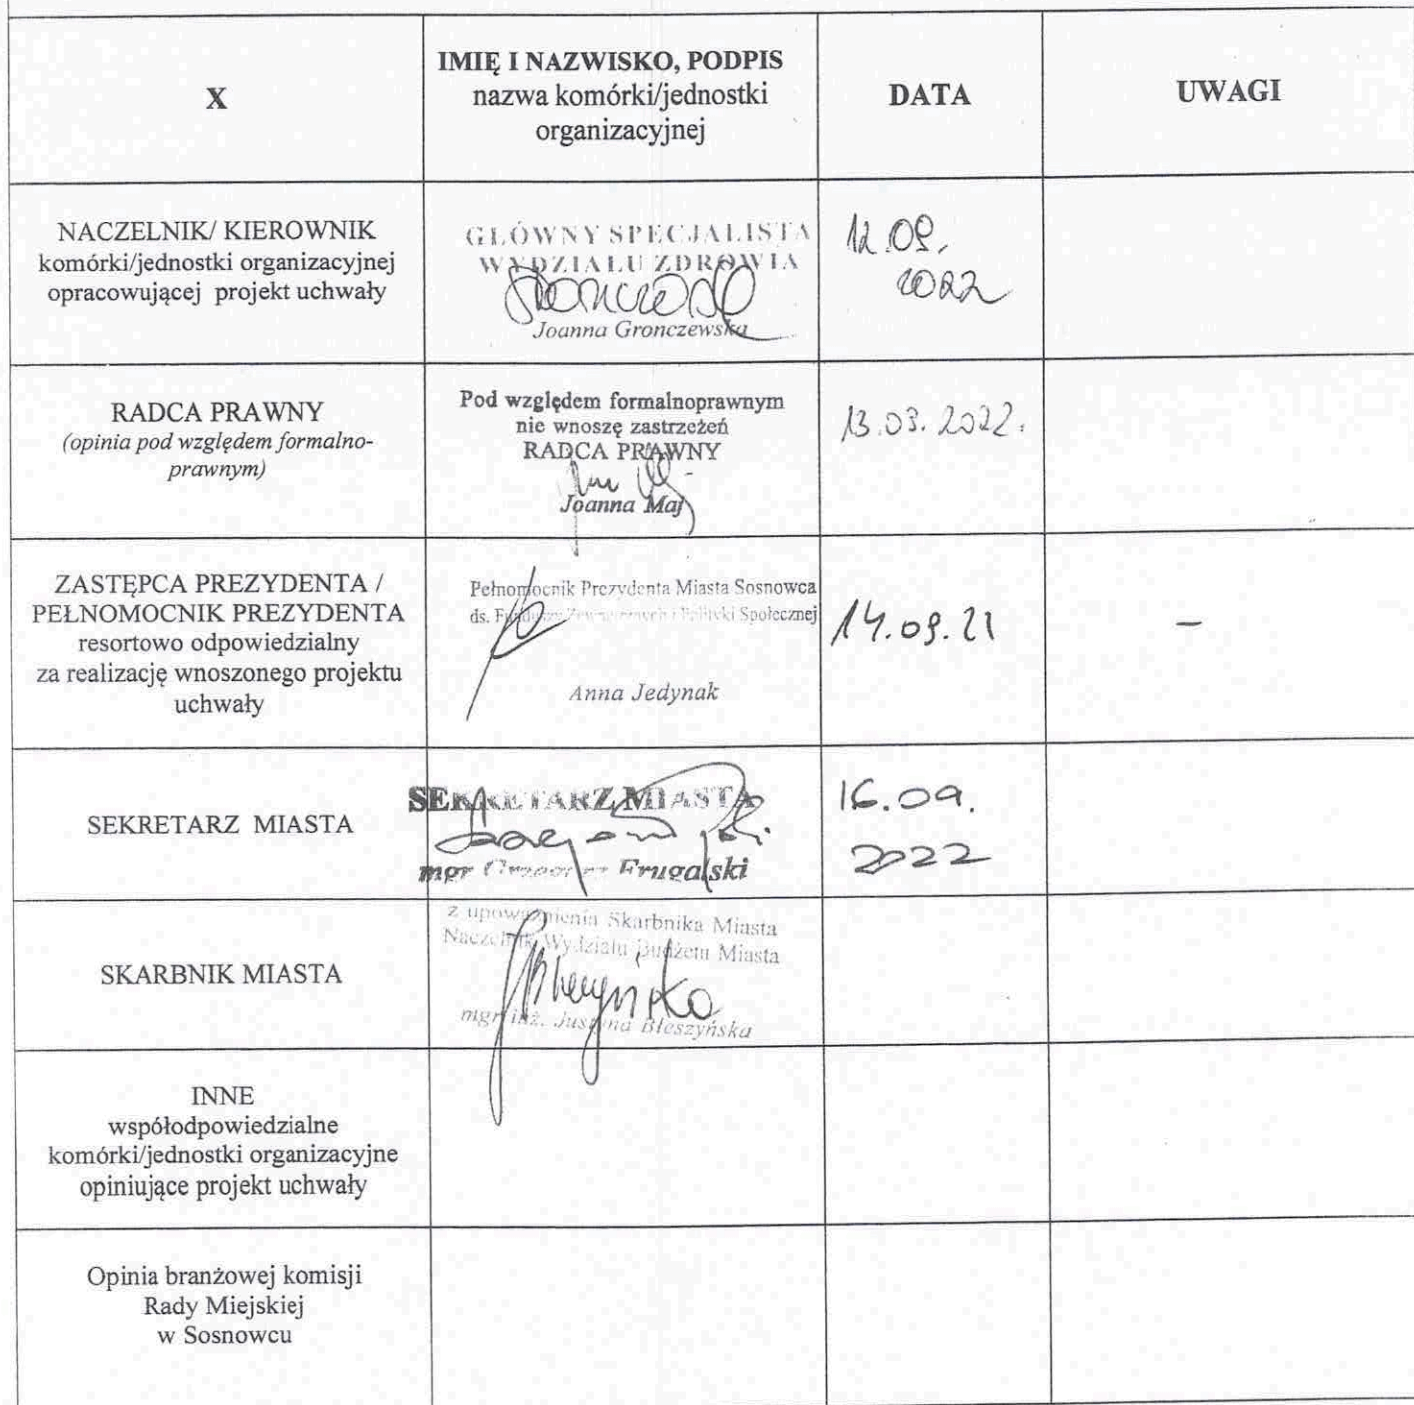 X
IMIĘ I NAZWISKO, PODPIS
nazwa komórki/jednostki
organizacyjnej
DATA
UWAGI
NACZELNIK/ KIEROWNIK
komórki/jednostki organizacyjnej
opracowującej projekt uchwały
GŁÓWNY SPECJALISTA
WYDZIAŁU ZDROWIA
Joanna Gronczewska
12.09.
2022
RADCA PRAWNY
(opinia pod względem formalno-
prawnym)
Pod względem formalnoprawnym
nie wnoszę zastrzeżeń
RADCA PRAWNY
Joanna Maj
13.09.2022.
ZASTĘPCA PREZYDENTA /
PEŁNOMOCNIK PREZYDENTA
resortowo odpowiedzialny
za realizację wnoszonego projektu
uchwały
Pełnomocnik Prezydenta Miasta Sosnowca
ds. Funduszy Zewnętrznych i Polityki Społecznej
Anna Jedynak
14.09.21
–
SEKRETARZ MIASTA
SEKRETARZ MIASTA
mgr Grzegorz Frugalski
16.09.
2022
SKARBNIK MIASTA
z upoważnienia Skarbnika Miasta
Naczelnik Wydziału Budżetu Miasta
mgr inż. Justyna Błeszyńska
INNE
współodpowiedzialne
komórki/jednostki organizacyjne
opiniujące projekt uchwały
Opinia branżowej komisji
Rady Miejskiej
w Sosnowcu